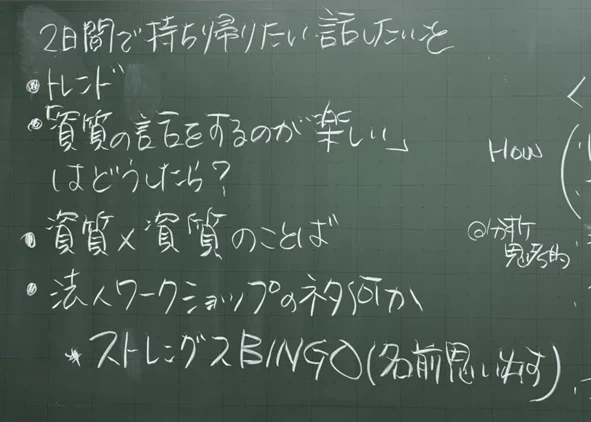 2日間で持ち帰りたい話したいこと
・トレンド
・「資質の話をするのが楽しい」
はどうしたら？
・資質×資質のことば
・法人ワークショップのネタ何か
* ストレングスBINGO(名前思い出す)
How
◎分析
思考的